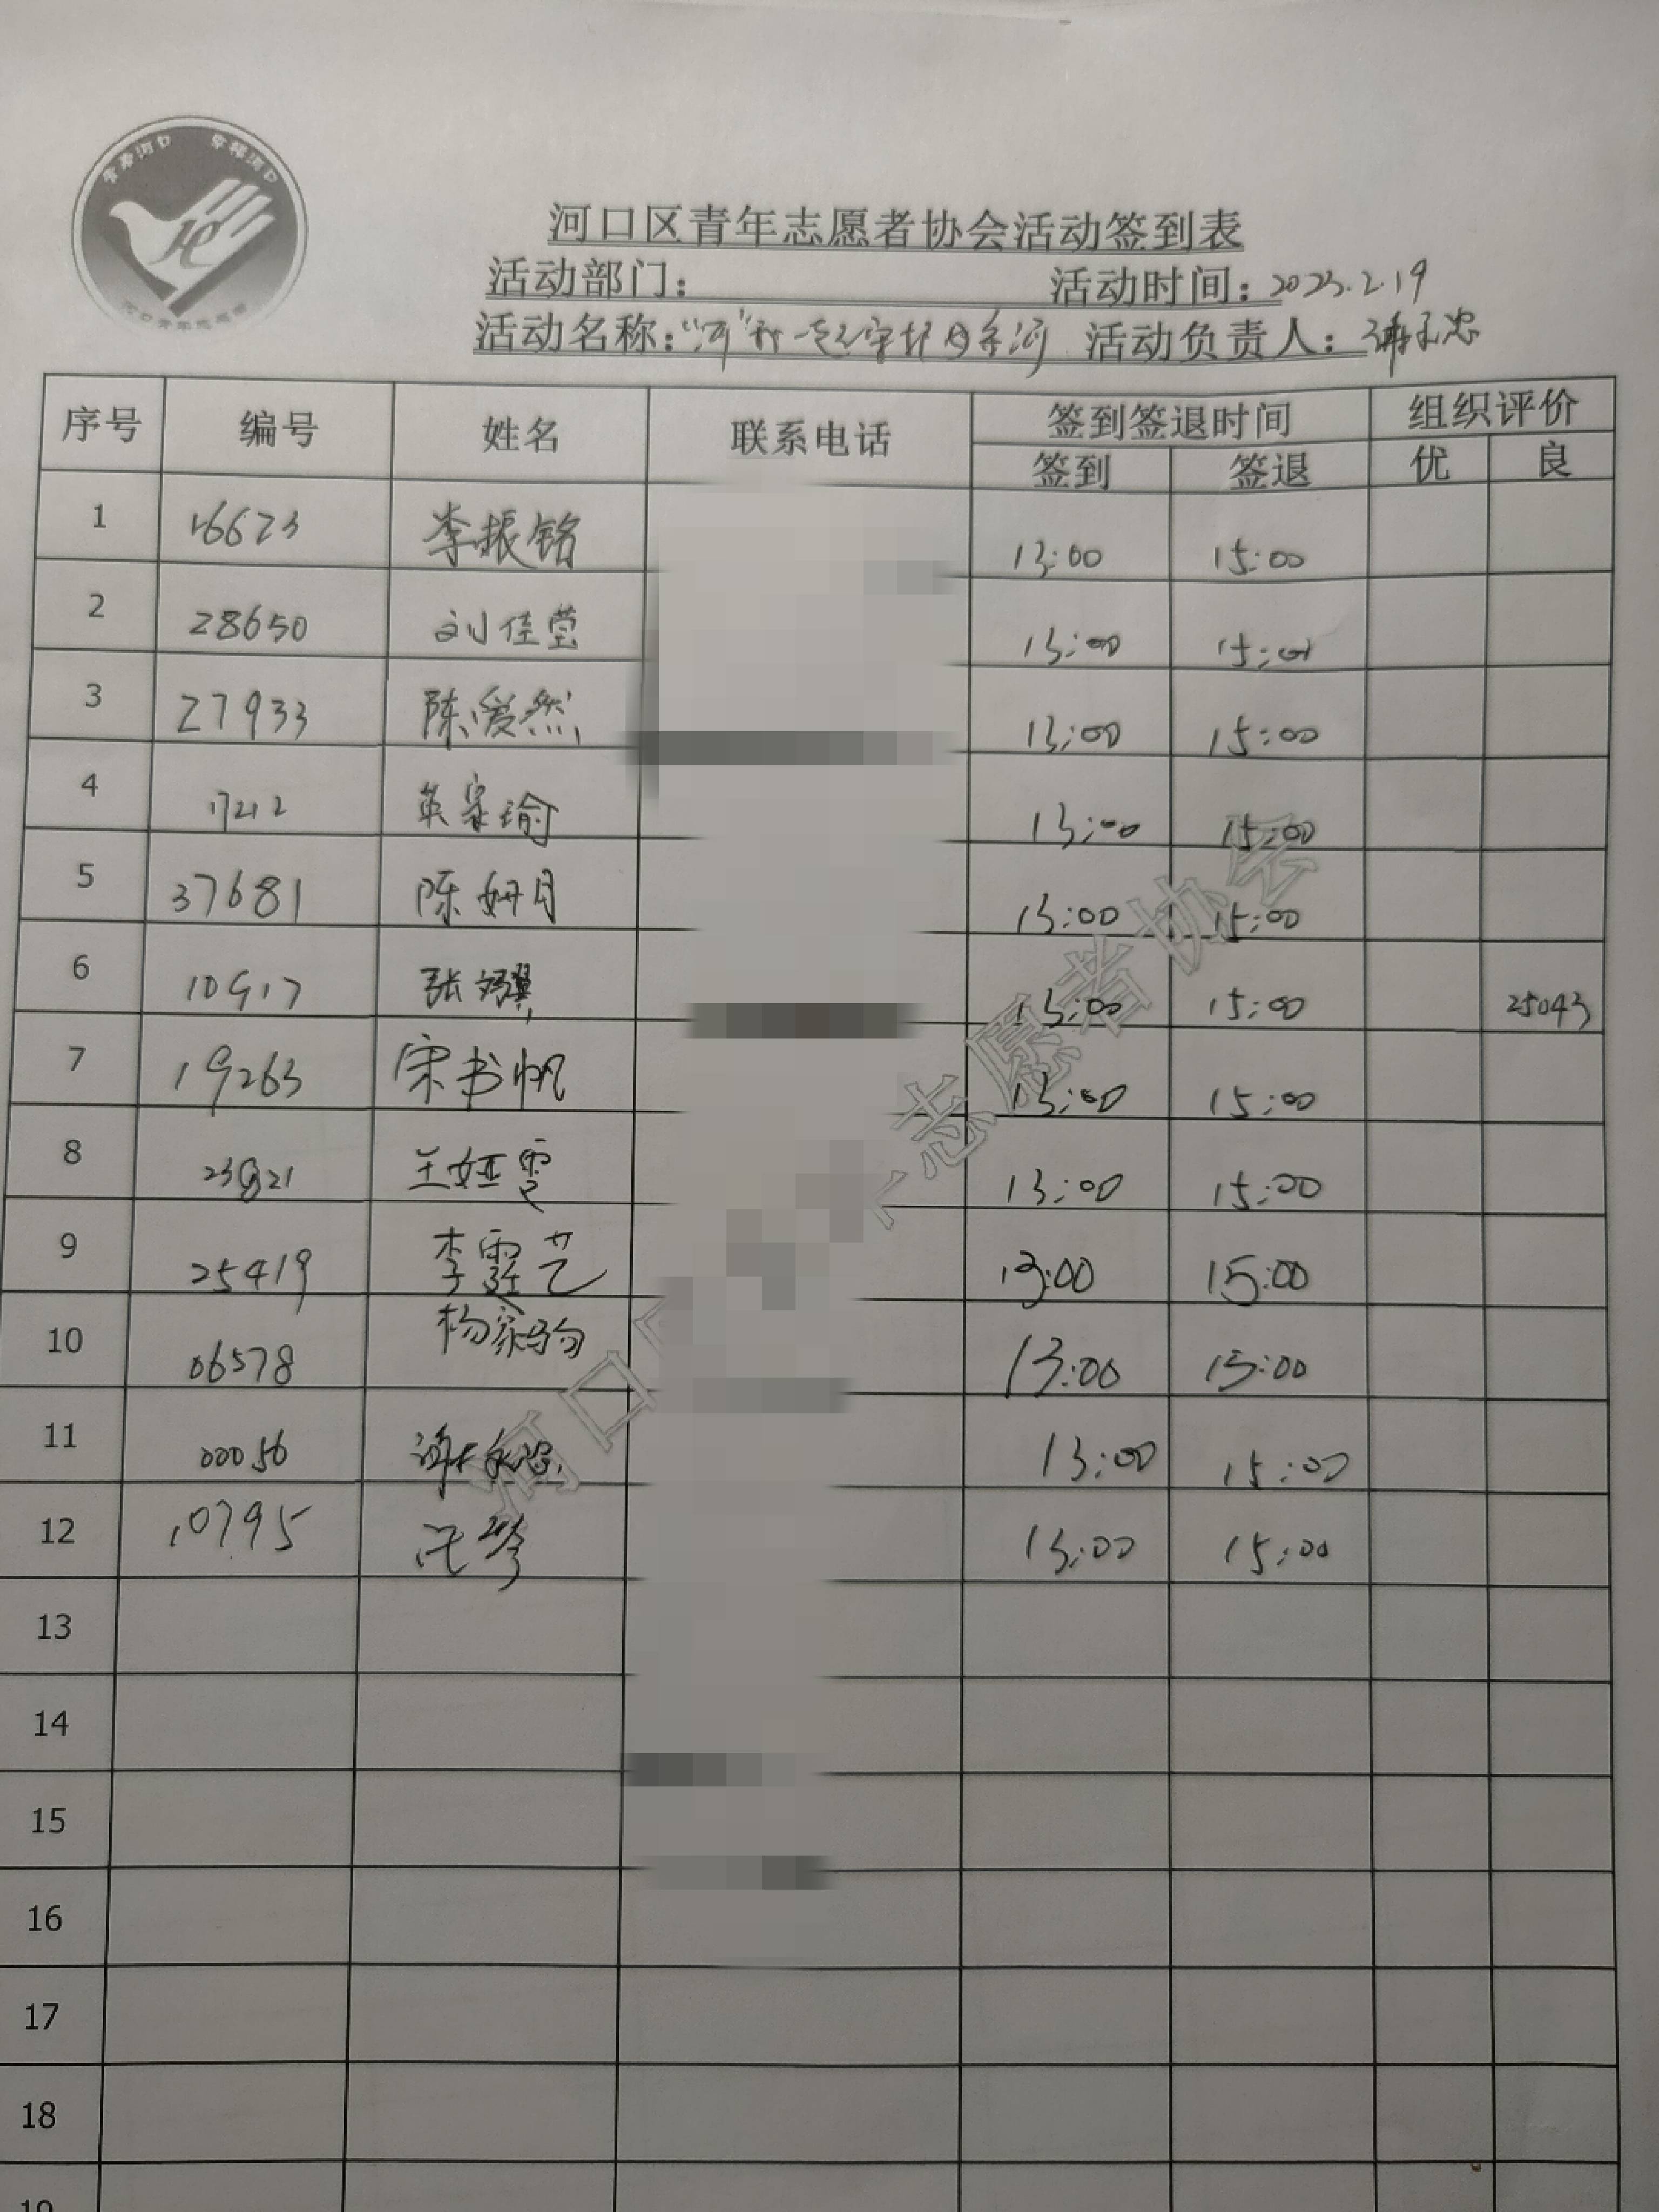 河口区青年志愿者协会活动签到表
活动部门： 活动时间：2023.2.19
活动名称："河"我一起守护母亲河 活动负责人：
序号 编号 姓名 联系电话 签到签退时间 组织评价
签到 签退 优 良
1 16623 李振铭 13:00 15:00
2 28650 刘佳莹 13:00 15:00
3 27933 陈爱然 13:00 15:00
4 17212 13:00 15:00
5 37681 陈妍月 13:00 15:00
6 10917 张 13:00 15:00 25043
7 19263 宋书帆 13:00 15:00
8 王娅雯 13:00 15:00
9 25419 李霆艺 13:00 15:00
10 06578 杨家驹 13:00 15:00
11 00056 13:00 15:00
12 10795 13:00 15:00
13
14
15
16
17
18
19
河口 志愿者协会